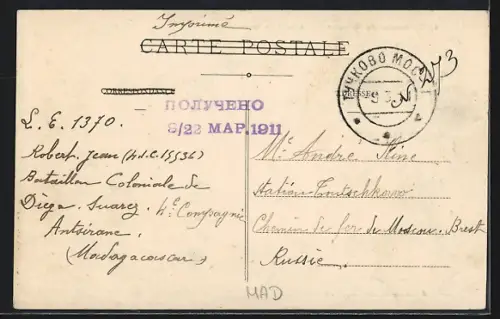 Imprimé
CARTE POSTALE
CORRESPONDANCE
ADRESSE
ПОЛУЧЕНО
9/22 МАР. 1911
ТУЧКОВО МОСК
273
L. E. 1370.
Robert Jean (h.d.C. 15536)
Bataillon Coloniale de
Diego-Suarez. 4e Compagnie
Antsirane.
(Madagascar)
Mr André Kine
Station Toutschkowo
Chemin de fer de Moscou-Brest
Russie.
MAD